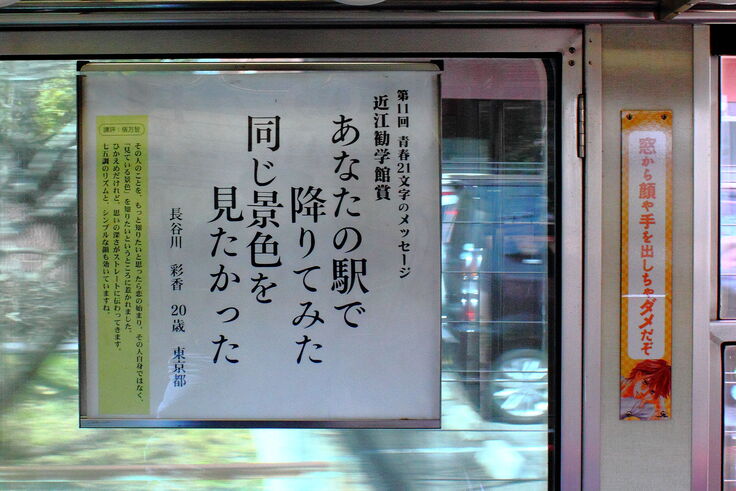 第11回 青春21文字のメッセージ
近江勧学館賞
あなたの駅で
降りてみた
同じ景色を
見たかった
長谷川 彩香 20歳 東京都
講評:俵万智
その人のことを、もっと知りたいと思ったら恋の始まり。その人自身ではなく、
「見ている景色」を知りたいというところに惹かれました。
ひかえめだけれど、思いの深さがストレートに伝わってきます。
七五調のリズムと、シンプルな韻も効いていますね。
窓から顔や手を出しちゃダメだぞ